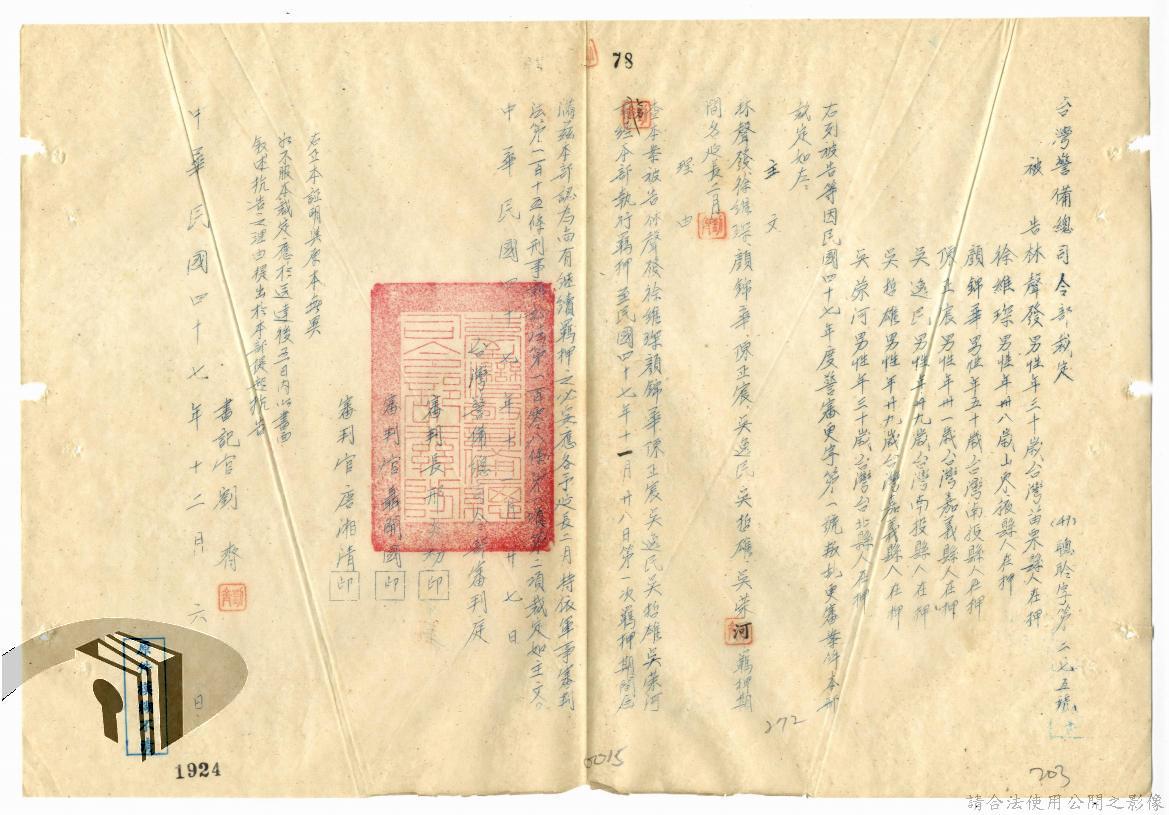 78
台灣警備總司令部裁定
(47)聽聆字第二七五號
被告林聲發男性年三十歲台灣苗栗縣人在押
徐維琛男性年卅八歲山東掖縣人在押
顏錦華男性年五十歲台灣南投縣人在押
陳正宸男性年卅一歲台灣嘉義縣人在押
吳逸民男性年廿九歲台灣南投縣人在押
吳哲雄男性年廿九歲台灣嘉義縣人在押
吳榮河男性年三十歲台灣台北縣人在押
右列被告等因民國四十七年度警審更字第一號叛乱更審案件本部
裁定如左
主文
林聲發、徐維琛、顏錦華、陳正宸、吳逸民、吳哲雄、吳榮河羈押期
間各延長二月
理由
查本案被告林聲發徐維琛顏錦華陳正宸吳逸民吳哲雄吳榮河
經本部執行羈押至民國四十七年十一月廿八日第一次羈押期間屆
滿茲本部認為尚有繼續羈押之必要應各予延長二月特依軍事審判
法第一百十五條刑事訴訟法第一百零八條第一項第二項裁定如主文。
中華民國四十七年十一月廿七日
台灣警備總司令部審判庭
審判長邢炎初 印
審判官聶開國 印
審判官唐湘清 印
右正本証明與原本無異
如不服本裁定應於送達後五日內以書面
敘述抗告之理由提出於本部提起抗告
書記官劉
中華民國四十七年十二月六日
272
0015
203
1924
請合法使用公開之影像